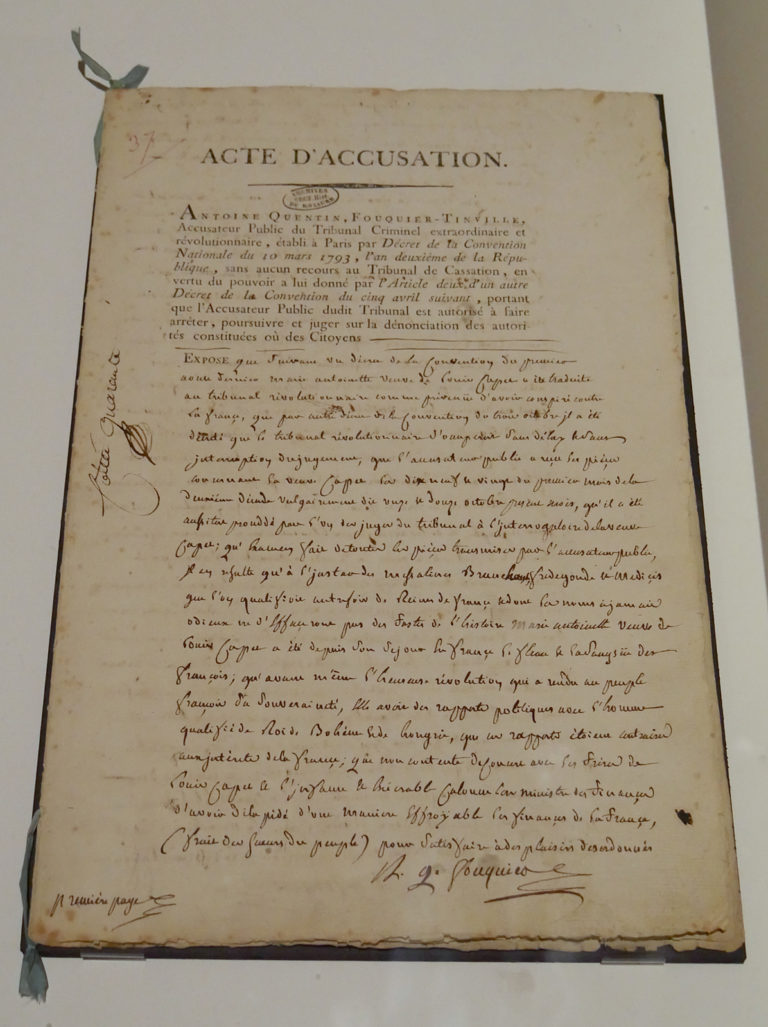 37
ACTE D'ACCUSATION.
ARCHIVES
DU ROYAUME
ANTOINE QUENTIN, FOUQUIER-TINVILLE,
Accusateur Public du Tribunal Criminel extraordinaire et
révolutionnaire, établi à Paris par Décret de la Convention
Nationale du 10 mars 1793, l'an deuxième de la Répu-
blique, sans aucun recours au Tribunal de Cassation, en
vertu du pouvoir a lui donné par l'Article deux d'un autre
Décret de la Convention du cinq avril suivant, portant
que l'Accusateur Public dudit Tribunal est autorisé à faire
arrêter, poursuivre et juger sur la dénonciation des autori-
tés constituées où des Citoyens
EXPOSE que suivant un décret de la Convention du premier
aout dernier marie antoinette veuve de Louis Capet a été traduite
au tribunal révolutionnaire comme prévenue d'avoir conspiré contre
la france, que par autre décret de la Convention du trois octobre il a été
décrété que le tribunal révolutionnaire s'occuperoit sans délay & sans
interruption du jugement, que l'accusateur public a reçu les pièces
concernant la veuve Capet les dix neuf & vingt du premier mois de la
deuxième décade vulgairement dit onze & douze octobre présent mois, qu'il a été
aussitot procédé par l'un des juges du tribunal à l'Interrogatoire de la veuve
Capet; qu'examen fait de toutes les pièces transmises par l'accusateur public,
Il en résulte qu'à l'instar des messalines Brunehaut, fredegonde & Medicis
que l'on qualifioit autrefois de Reines de france & dont les noms à jamais
odieux ne s'effaceront pas des fastes de l'histoire marie antoinette veuve de
Louis Capet a été depuis son séjour en france le fléau & la sangsüe des
françois; qu'avant même l'heureuse révolution qui a rendu au peuple
françois sa souveraineté, Elle avoit des rapports politiques avec l'homme
qualifié de Roi de Bohème & de hongrie, que ces rapports étoient contraires
aux intérêts de la france; que non contente de concert avec les frères de
Louis Capet & l'infame & exécrable Calonne lors ministre des finances
d'avoir dilapidé d'une manière effroyable les finances de la france,
(fruit des sueurs du peuple) pour satisfaire à des plaisirs desordonnés
A. Q. Fouquier
première page
Cotte quarante